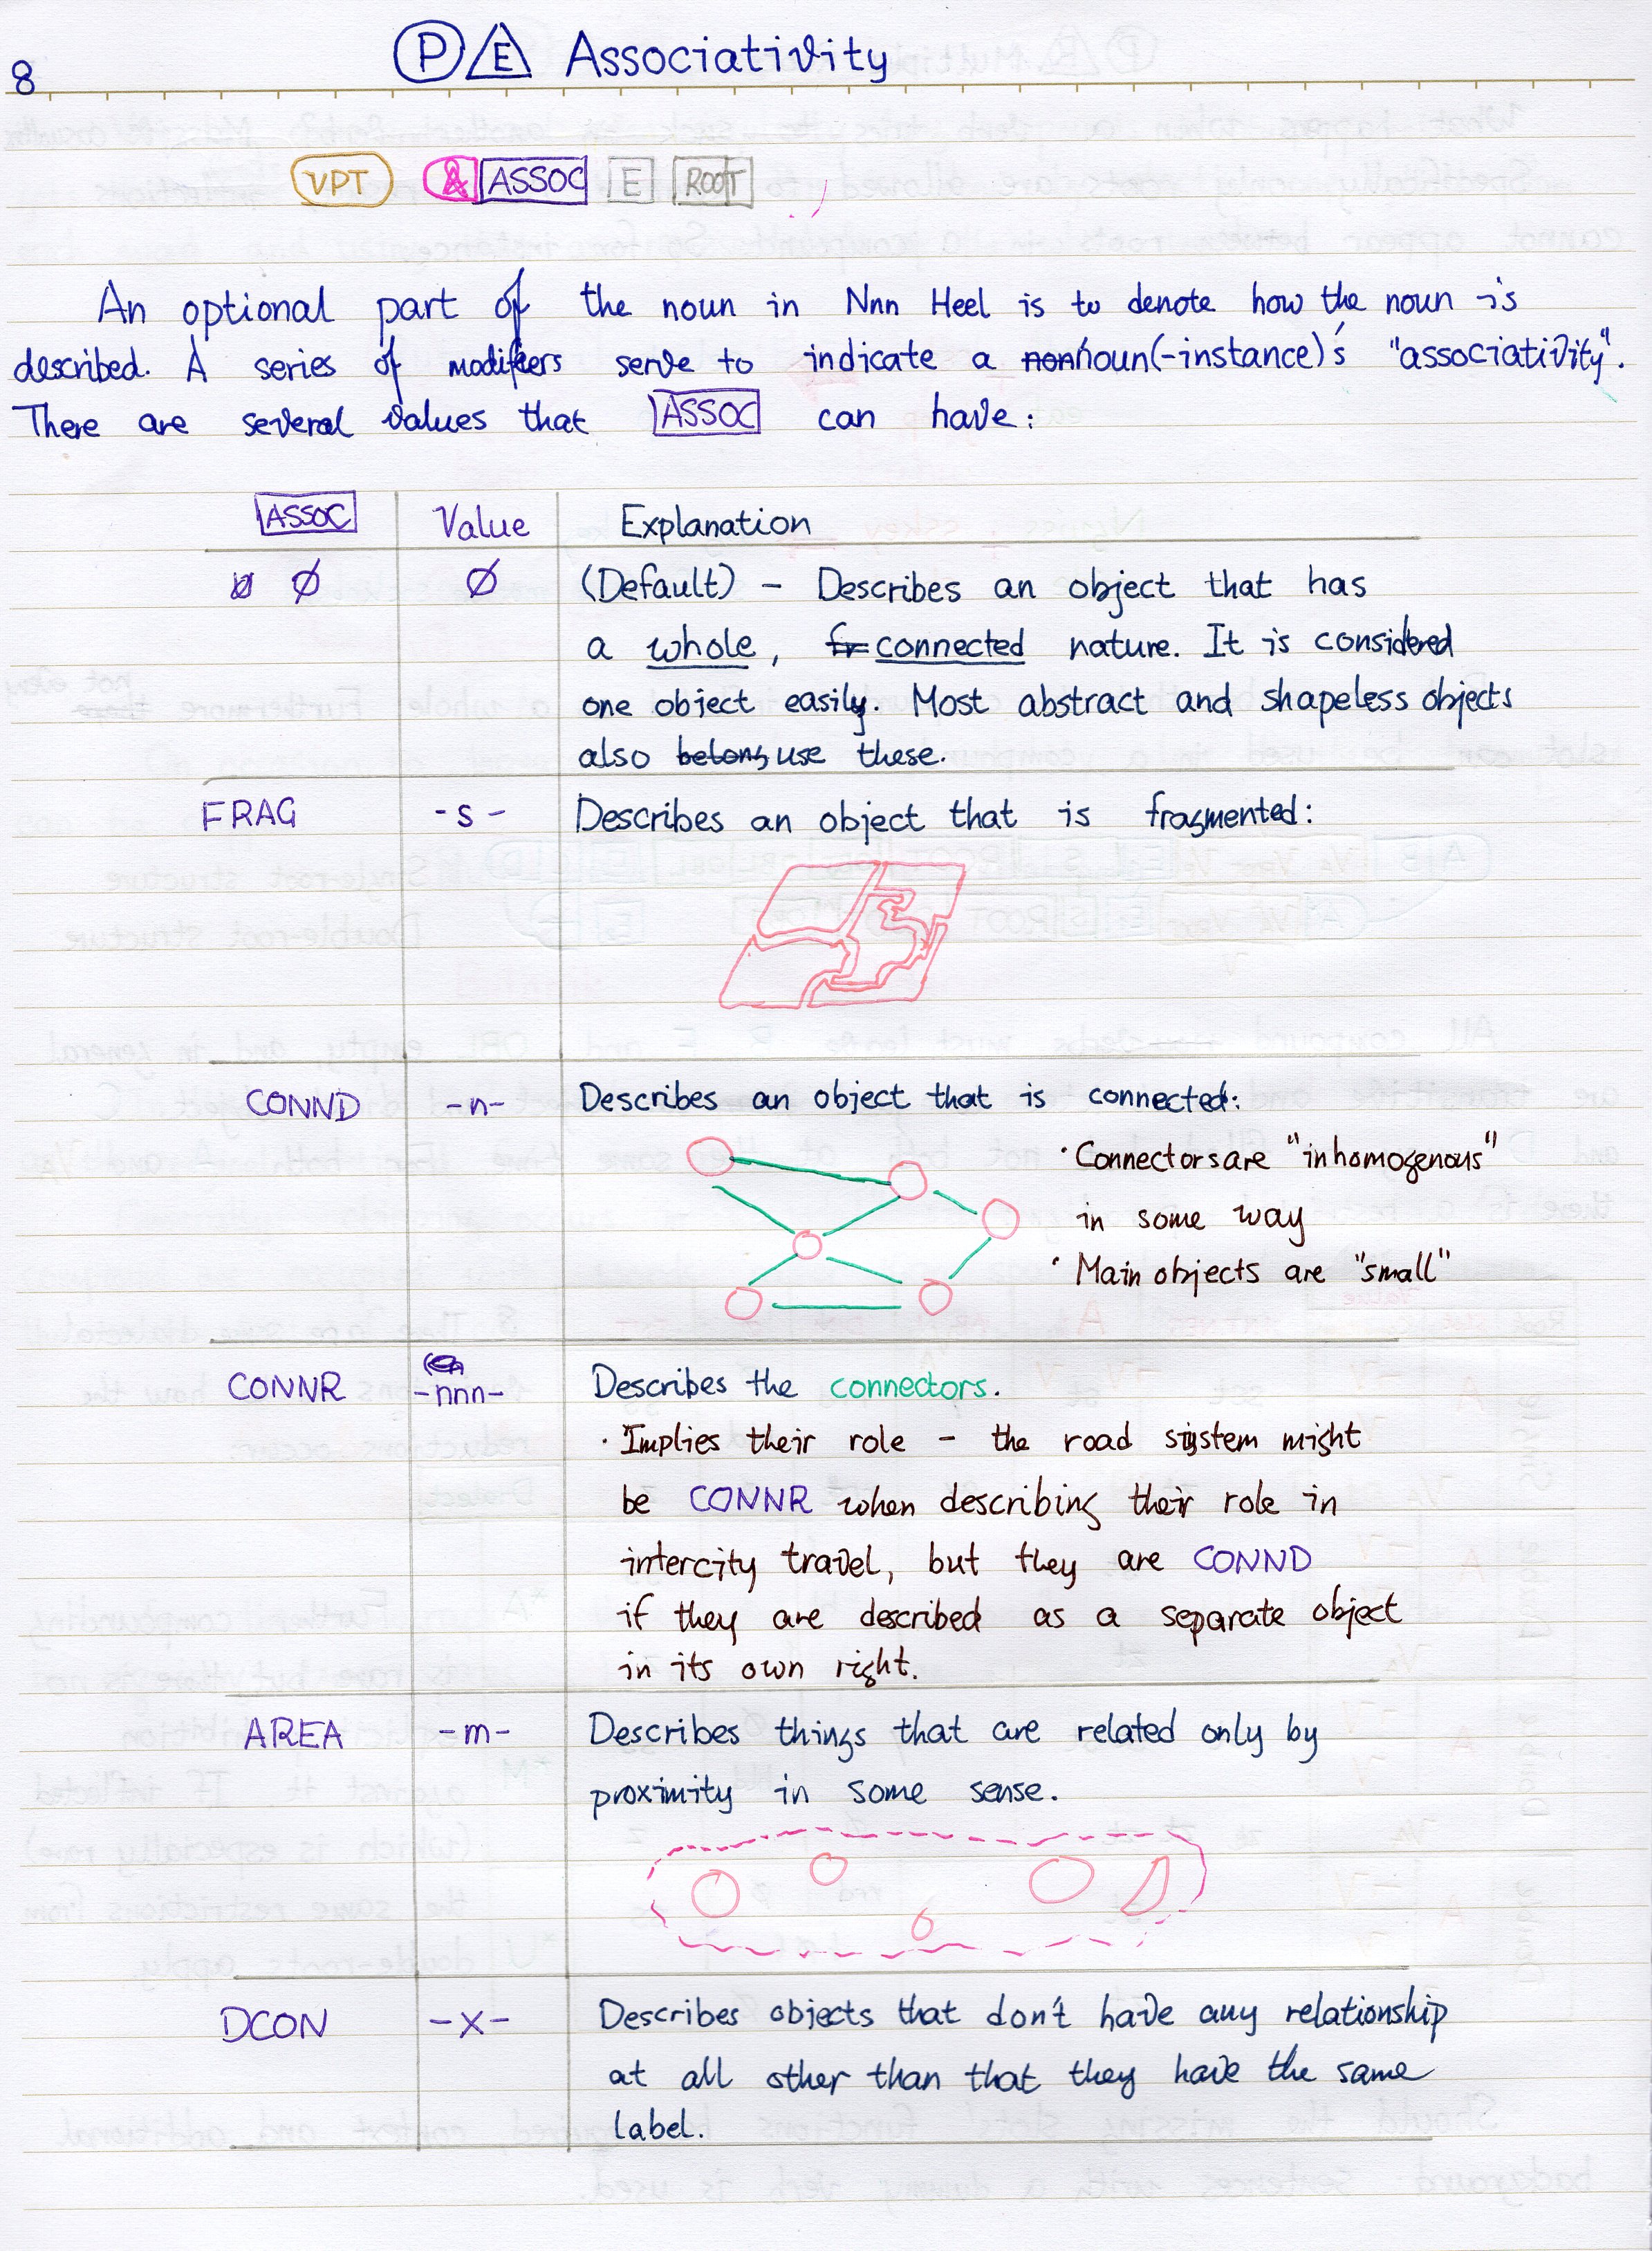 8
P E Associativity
VPT & ASSOC E ROOT
An optional part of the noun in Nnn Heel is to denote how the noun is
described. A series of modifiers serve to indicate a non noun(-instance)'s "associativity".
There are several values that ASSOC can have:
ASSOC Value Explanation
∅ ∅ (Default) - Describes an object that has
a whole, fr connected nature. It is considered
one object easily. Most abstract and shapeless objects
also belong use these.
FRAG -s- Describes an object that is fragmented:
CONND -n- Describes an object that is connected:
· Connectors are "inhomogenous"
in some way
· Main objects are "small"
CONNR -nnn- Describes the connectors.
· Implies their role - the road system might
be CONNR when describing their role in
intercity travel, but they are CONND
if they are described as a separate object
in its own right.
AREA -m- Describes things that are related only by
proximity in some sense.
DCON -x- Describes objects that don't have any relationship
at all other than that they have the same
label.